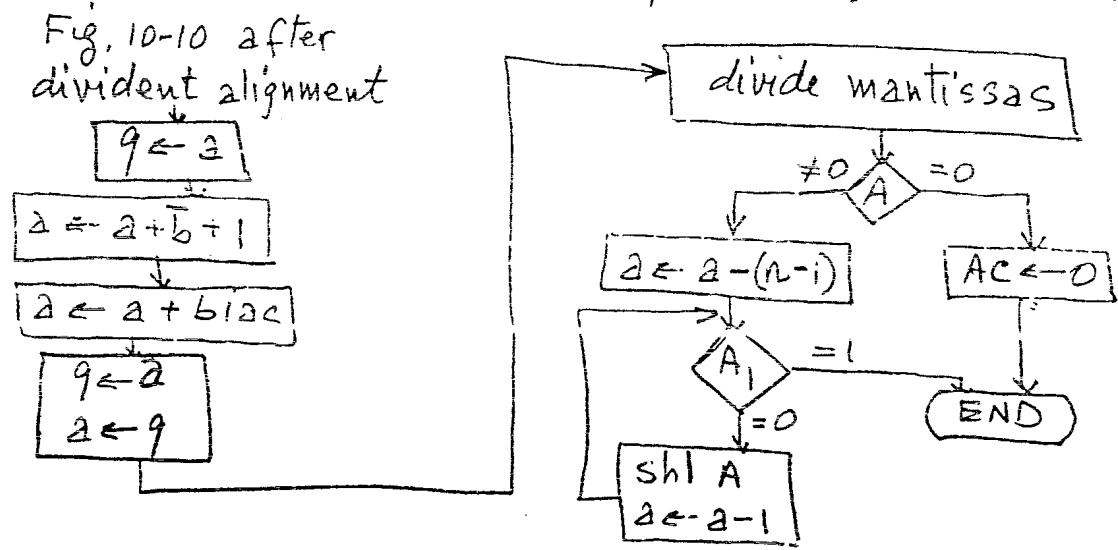 Fig. 10-10 after
divident alignment
q ← a
a ← a + b̅ + 1
a ← a + biac
q ← a
a ← q
divide mantissas
≠0
A
=0
a ← a - (n-i)
AC ← 0
A₁
=1
END
=0
shl A
a ← a-1